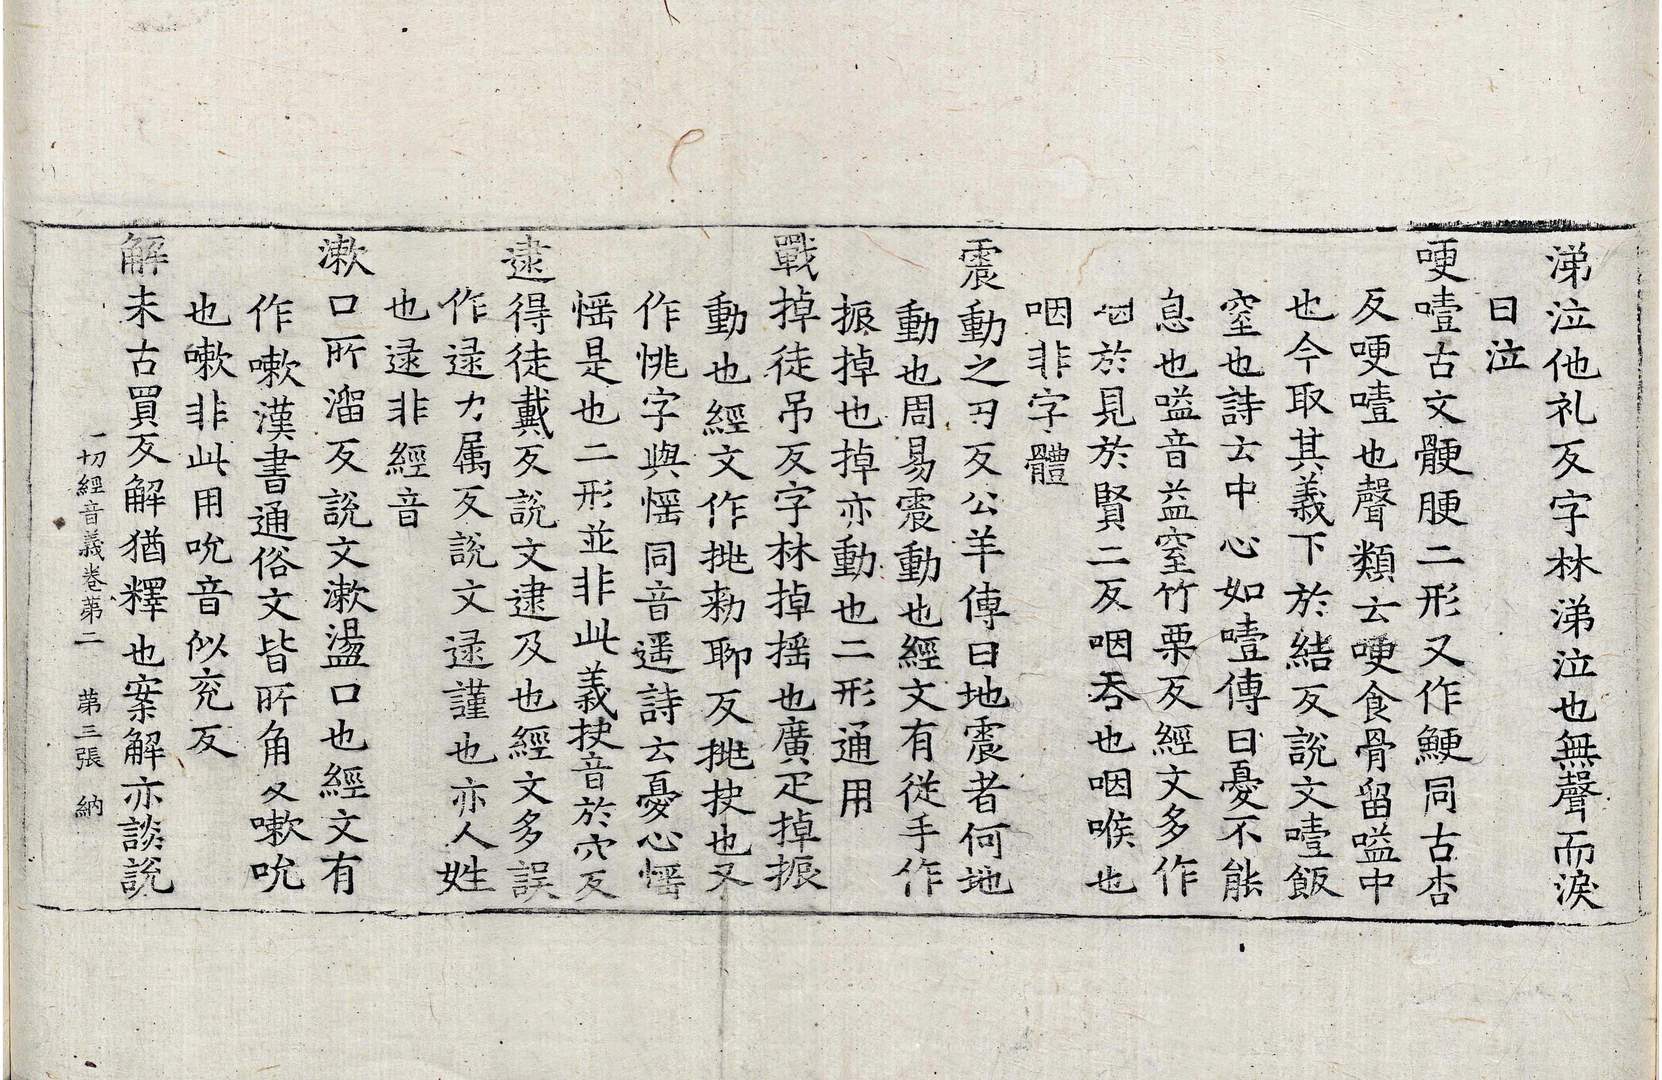 涕泣他礼反字林涕泣也無聲而淚
曰泣
哽噎古文骾腰二形又作鯁同古杏
反哽噎也聲類云哽食骨留嗌中
也今取其義下於結反說文噎飯
窒也詩云中心如噎傳曰憂不能
息也嗌音益窒竹栗反經文多作
咽於見於賢二反咽吞也咽喉也
咽非字體
震動之刃反公羊傳曰地震者何地
動也周易震動也經文有從手作
振掉也掉亦動也二形通用
戰掉徒吊反字林掉搖也廣疋掉振
動也經文作挑勑聊反挑抉也又
作恌字與愮同音遥詩云憂心愮
愮是也二形並非此義抉音於穴反
逮得徒戴反說文逮及也經文多誤
作逯力属反說文逯謹也亦人姓
也逯非經音
漱口所溜反說文漱盪口也經文有
作嗽漢書通俗文皆所角反嗽吮
也嗽非此用吮音似兖反
解未古買反解猶釋也案解亦談說
一切經音義卷苐二 苐三張 納